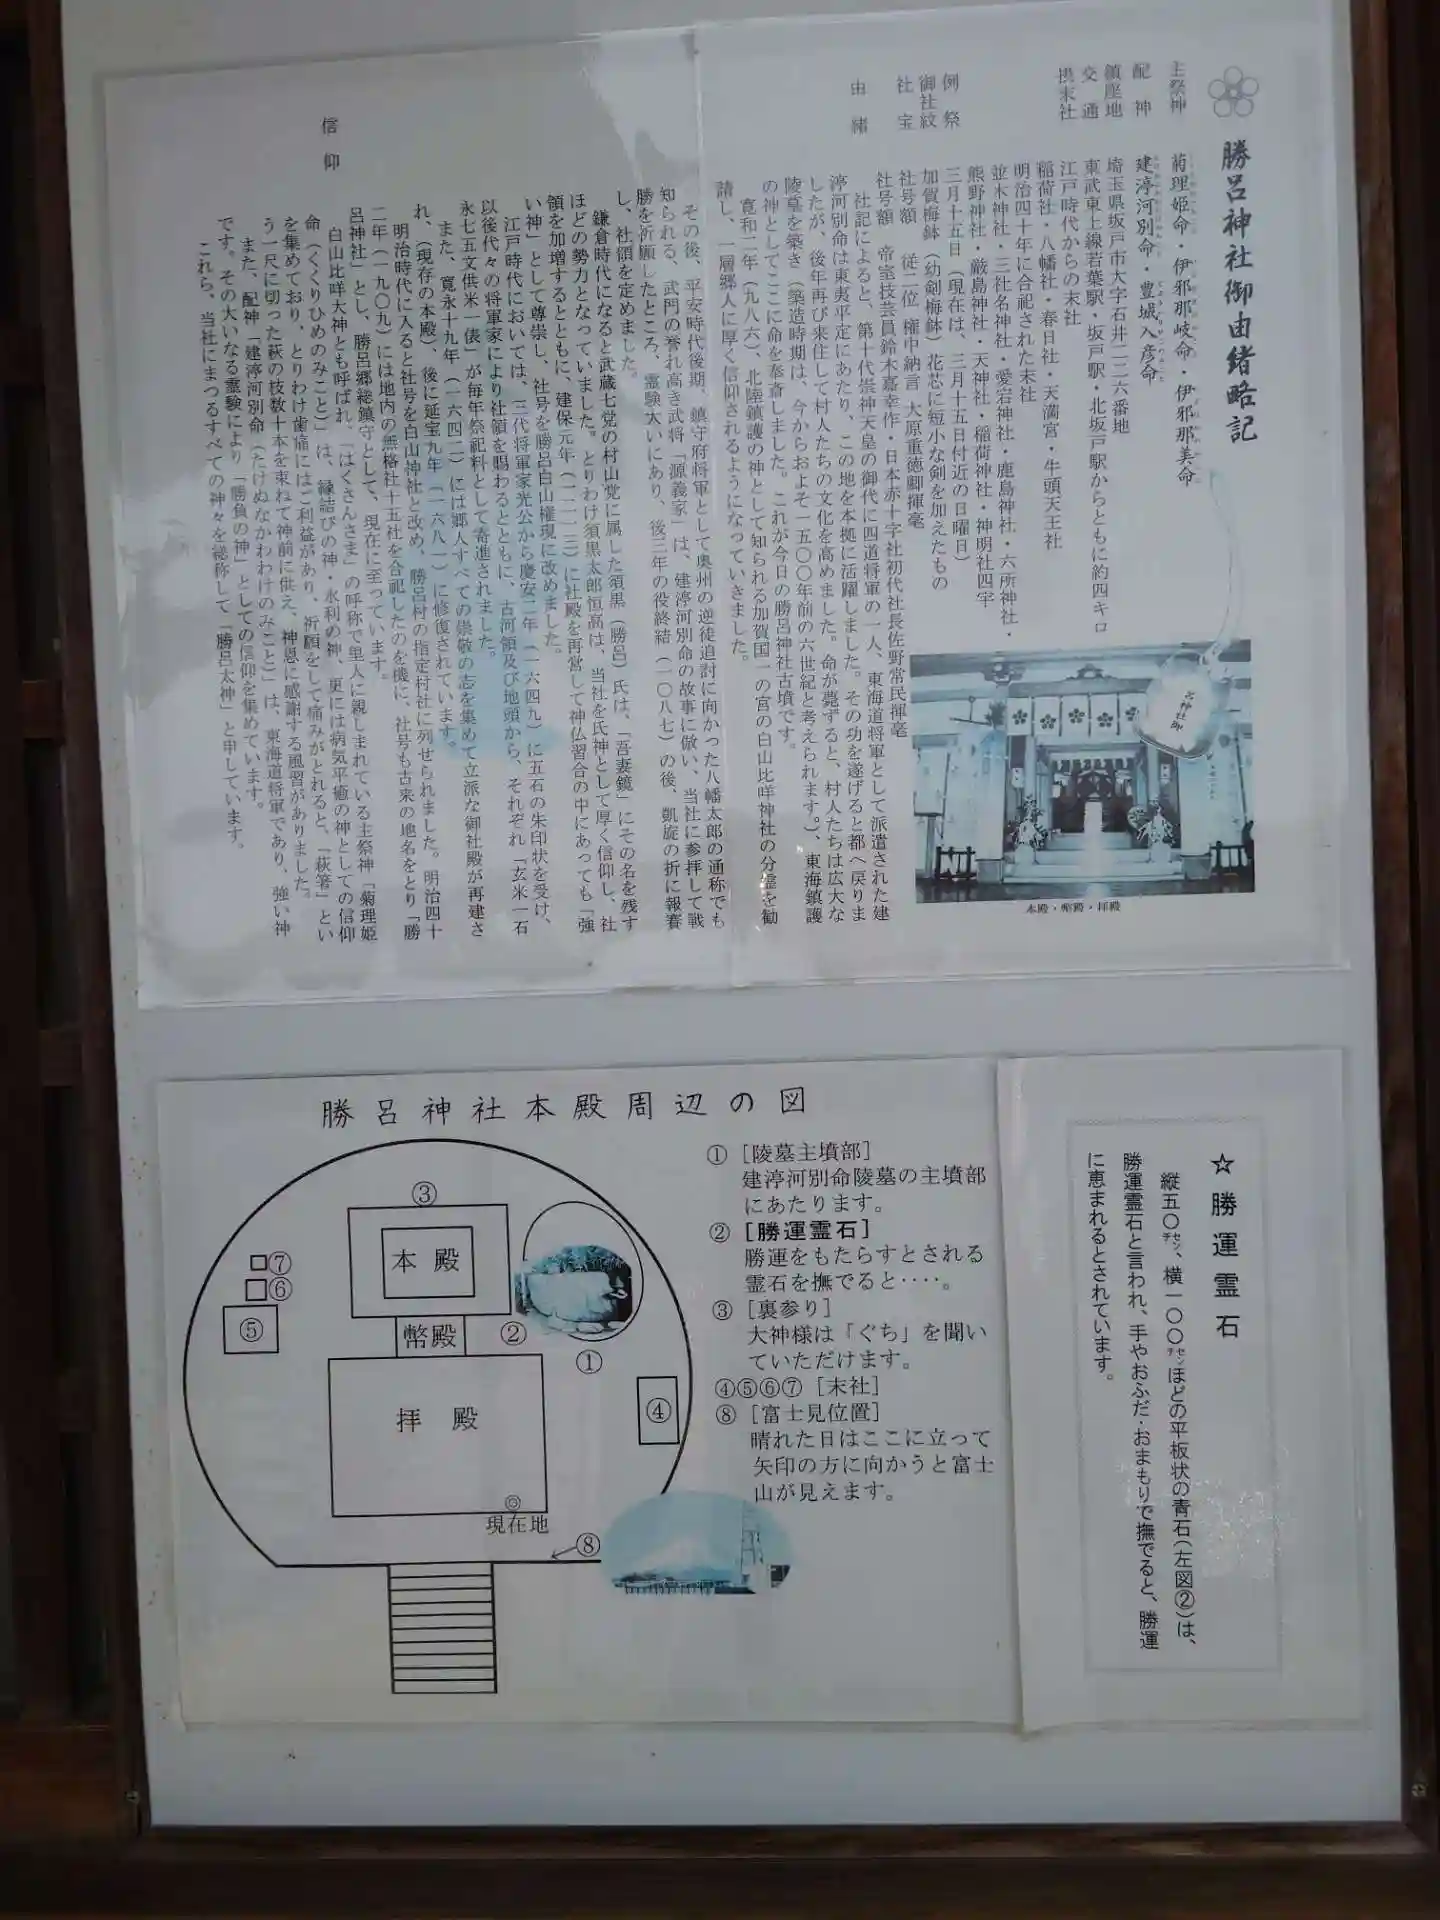 勝呂神社御由緒略記
主祭神 菊理姫命・伊邪那岐命・伊邪那美命
配神 建渟河別命・豊城入彦命
鎮座地 埼玉県坂戸市大字石井二二二六番地
交通 東武東上線若葉駅・坂戸駅・北坂戸駅からともに約四キロ
摂末社 江戸時代からの末社
稲荷社・八幡社・春日社・天満宮・牛頭天王社
明治四十年に合祀された末社
並木神社・三社名神社・愛宕神社・鹿島神社・六所神社・
熊野神社・厳島神社・天神社・稲荷神社・神明社四宇
例祭 三月十五日(現在は、三月十五日付近の日曜日)
御社紋 加賀梅鉢(幼剣梅鉢)花芯に短小な剣を加えたもの
社宝 社号額 従二位 権中納言 大原重徳卿揮毫
社号額 帝室技芸員鈴木嘉幸作・日本赤十字社初代社長佐野常民揮毫
由緒 社記によると、第十代崇神天皇の御代に四道将軍の一人、東海道将軍として派遣された建
渟河別命は東夷平定にあたり、この地を本拠に活躍しました。その功を遂げると都へ戻りま
したが、後年再び来住して村人たちの文化を高めました。命が薨ずると、村人たちは広大な
陵墓を築き(築造時期は、今からおよそ一五〇〇年前の六世紀と考えられます。)、東海鎮護
の神としてここに命を奉斎しました。これが今日の勝呂神社古墳です。
寛和二年(九八六)、北陸鎮護の神として知られる加賀国一の宮の白山比咩神社の分霊を勧
請し、一層郷人に厚く信仰されるようになっていきました。
その後、平安時代後期、鎮守府将軍として奥州の逆徒追討に向かった八幡太郎の通称でも
知られる、武門の誉れ高き武将「源義家」は、建渟河別命の故事に倣い、当社に参拝して戦
勝を祈願したところ、霊験大いにあり、後三年の役終結(一〇八七)の後、凱旋の折に報賽
し、社領を定めました。
鎌倉時代になると武蔵七党の村山党に属した須黒(勝呂)氏は、「吾妻鏡」にその名を残す
ほどの勢力となっていました。とりわけ須黒太郎恒高は、当社を氏神として厚く信仰し、社
領を加増するとともに、建保元年(一二一三)に社殿を再営して神仏習合の中にあっても「強
い神」として尊崇し、社号を勝呂白山権現に改めました。
江戸時代においては、三代将軍家光公から慶安二年(一六四九)に五石の朱印状を受け、
以後代々の将軍家により社領を賜わるとともに、古河領及び地頭から、それぞれ「玄米一石
永七五文供米一俵」が毎年祭祀料として寄進されました。
また、寛永十九年(一六四二)には郷人すべての崇敬の志を集めて立派な御社殿が再建さ
れ、(現存の本殿)、後に延宝九年(一六八一)に修復されています。
明治時代に入ると社号を白山神社と改め、勝呂村の指定村社に列せられました。明治四十
二年(一九〇九)には地内の無格社十五社を合祀したのを機に、社号も古来の地名をとり「勝
呂神社」とし、勝呂郷総鎮守として、現在に至っています。
信仰 白山比咩大神とも呼ばれ、「はくさんさま」の呼称で里人に親しまれている主祭神「菊理姫
命(くくりひめのみこと)」は、縁結びの神・水利の神、更には病気平癒の神としての信仰
を集めており、とりわけ歯痛にはご利益があり、祈願をして痛みがとれると、「萩箸」とい
う一尺に切った萩の枝数十本を束ねて神前に供え、神恩に感謝する風習がありました。
また、配神「建渟河別命(たけぬなかわわけのみこと)」は、東海道将軍であり、強い神
です。その大いなる霊験により「勝負の神」としての信仰を集めています。
これら、当社にまつるすべての神々を総称して「勝呂大神」と申しています。
本殿・幣殿・拝殿
勝呂神社本殿周辺の図
③
本殿
幣殿
拝殿
⑦
⑥
⑤
②
①
④
◎
現在地
⑧
①[陵墓主墳部]
建渟河別命陵墓の主墳部
にあたります。
②[勝運霊石]
勝運をもたらすとされる
霊石を撫でると‥‥。
③[裏参り]
大神様は「ぐち」を聞い
ていただけます。
④⑤⑥⑦[末社]
⑧[富士見位置]
晴れた日はここに立って
矢印の方に向かうと富士
山が見えます。
☆勝運霊石
縦五〇センチ、横一〇〇センチほどの平板状の青石(左図②)は、
勝運霊石と言われ、手やおふだ・おまもりで撫でると、勝運
に恵まれるとされています。